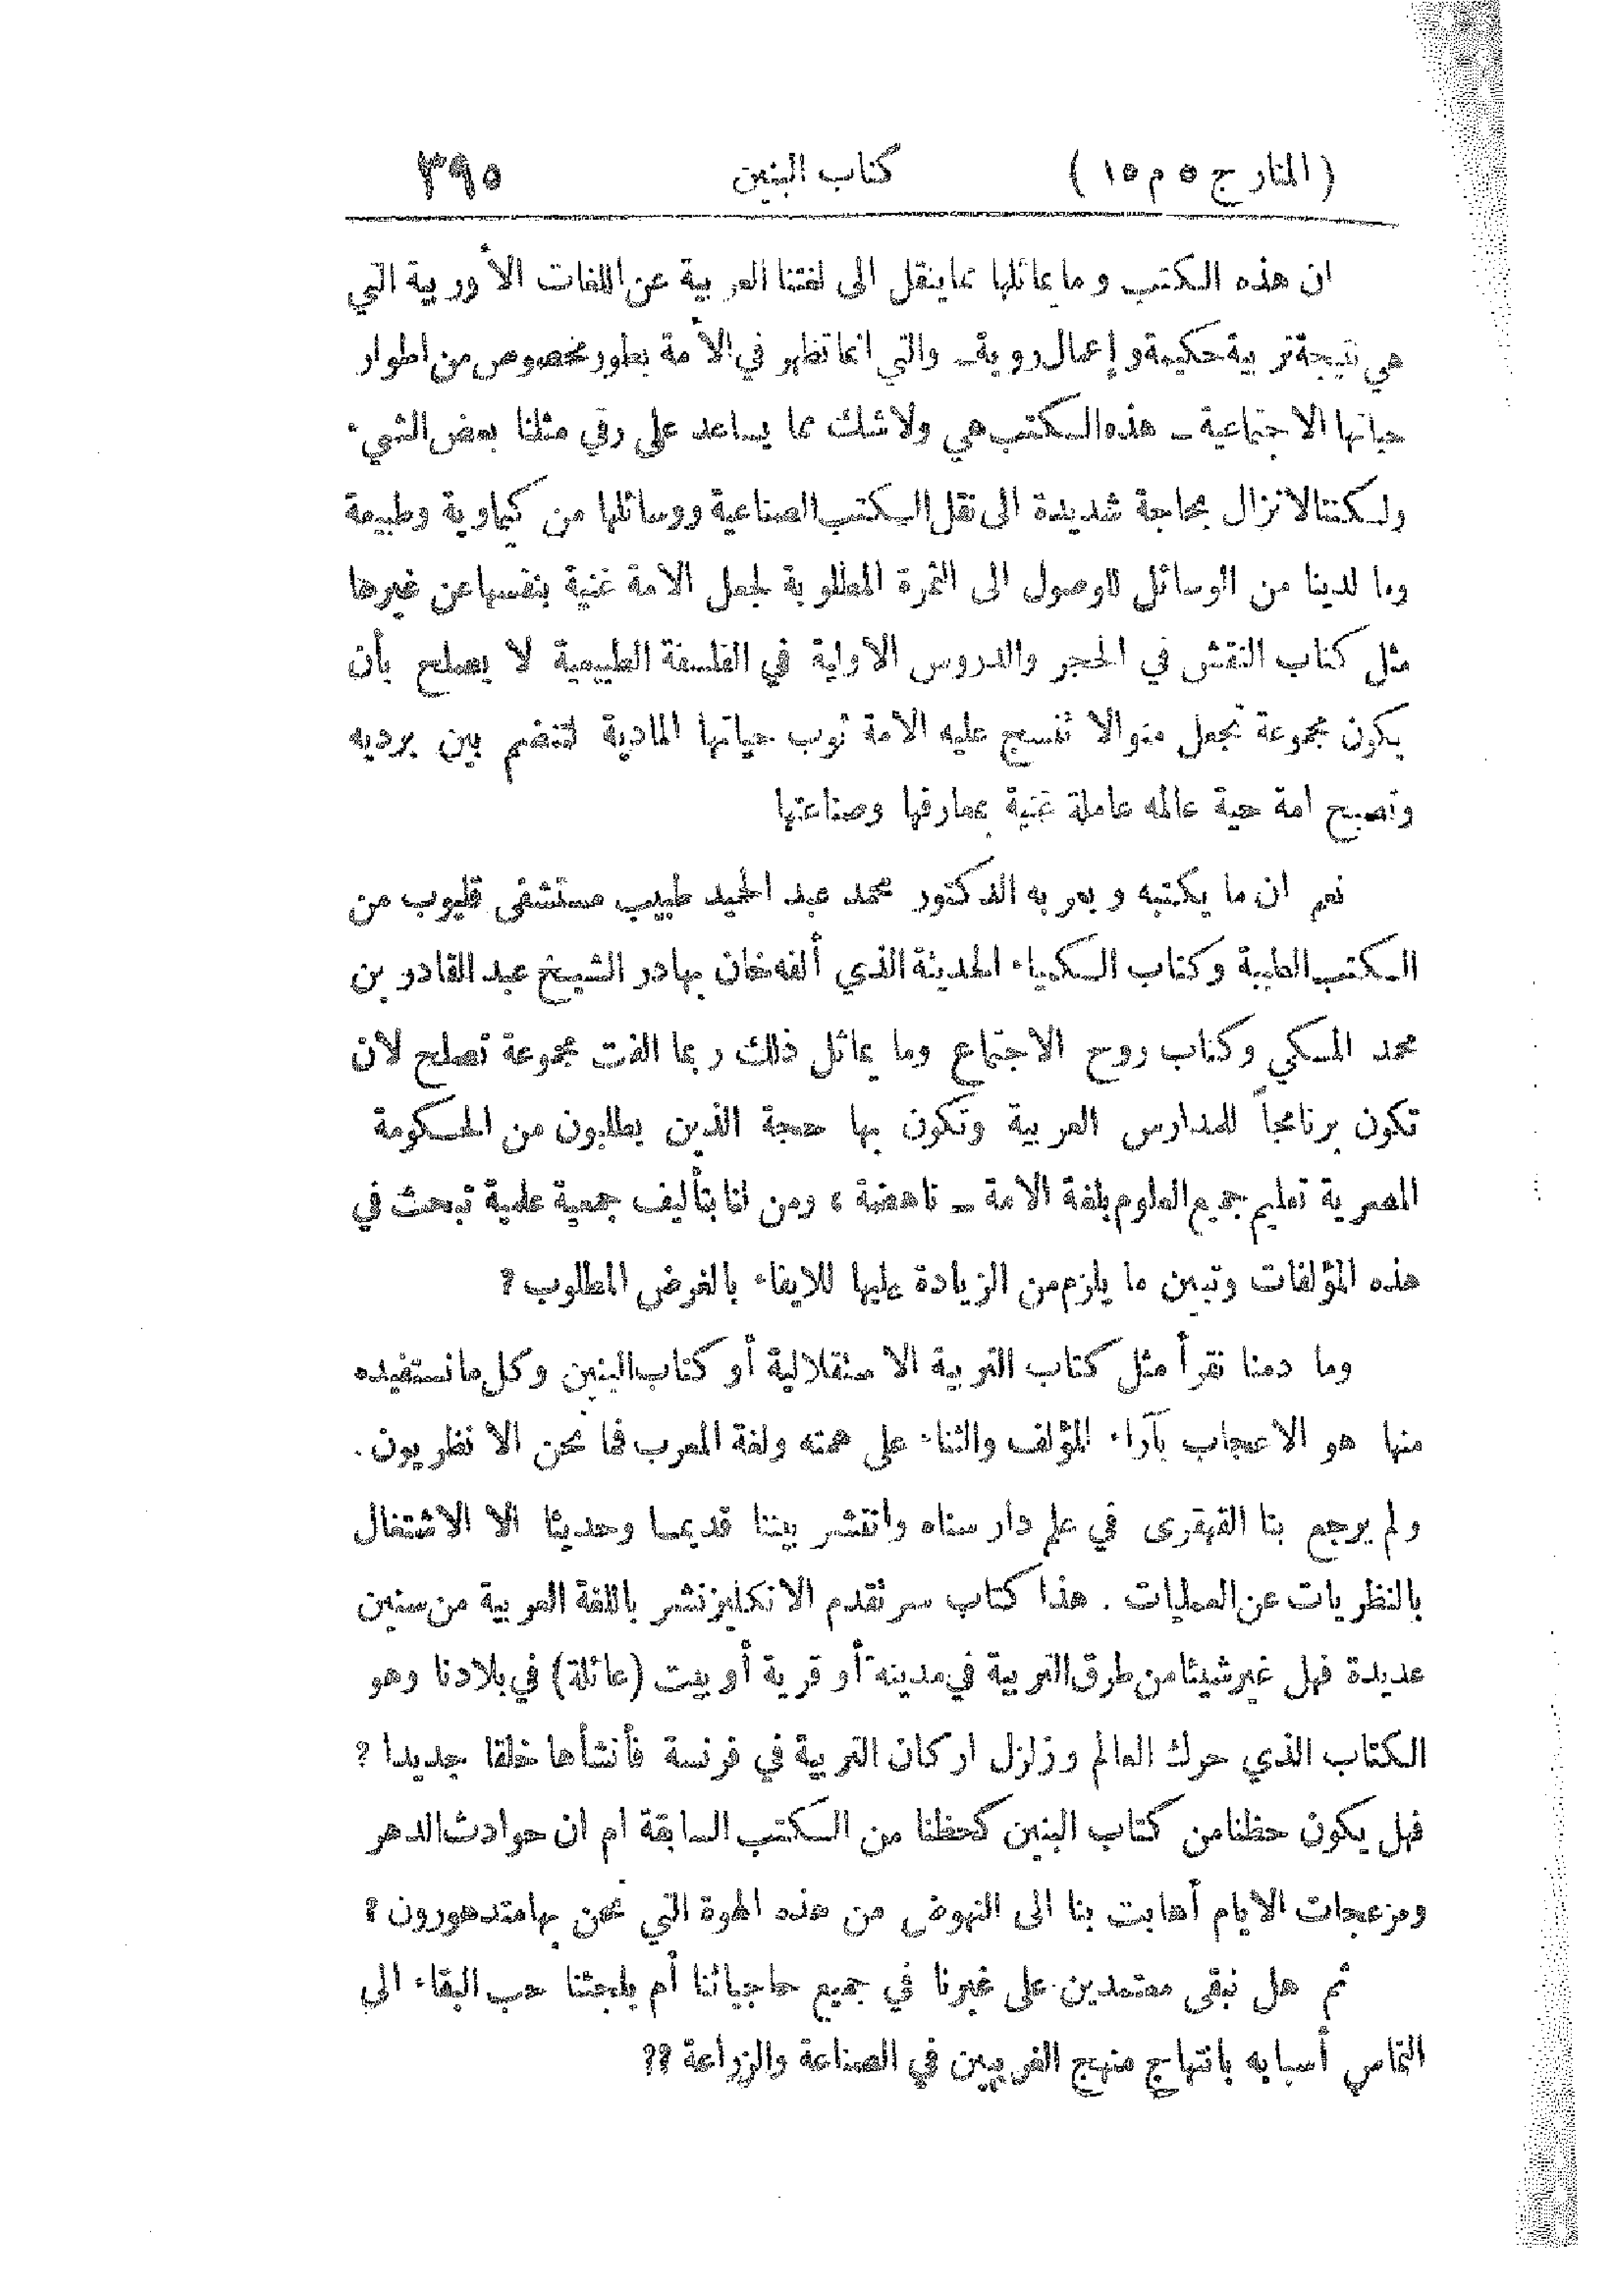 ( المنار ج ٥ م ١٥ ) كتاب البنين ٣٩٥
ان هذه الكتب وما يماثلها مما ينقل الى لغتنا العربية عن اللغات الأوربية التي
هي نتيجة تربية حكيمة وإعمال روية ـ والتي انما تظهر في الأمة بطور مخصوص من اطوار
حياتها الاجتماعية ـ هذه الكتب هي ولا شك مما يساعد على رقي مثلنا بعض الشيء
ولكننا لا نزال بحاجة شديدة الى نقل الكتب الصناعية ووسائلها من كيماوية وطبيعة
وما لدينا من الوسائل للوصول الى الثمرة المطلوبة لجعل الامة غنية بنفسها عن غيرها
مثل كتاب النقش في الحجر والدروس الاولية في الفلسفة الطبيعية لا يصلح بأن
يكون مجموعة تجعل منوالا تنسج عليه الامة ثوب حياتها المادية لتنضم بين برديه
وتصبح امة حية عالمه عاملة غنية بمعارفها وصناعتها
نعم ان ما يكتبه ويعربه الدكتور محمد عبد الحميد طبيب مستشفى قليوب من
الكتب الطبية وكتاب الكمياء الحديثة الذي ألفه خان بهادر الشيخ عبد القادر بن
محمد المكي وكتاب روح الاجتماع وما يماثل ذلك ربما الفت مجموعة تصلح لان
تكون برنامجاً للمدارس العربية وتكون بها حجة الذين يطلبون من الحكومة
المصرية تعليم جميع العلوم بلغة الامة ـ ناهضة ، ومن لنا بتأليف جمعية علمية تبحث في
هذه المؤلفات وتبين ما يلزم من الزيادة عليها للايفاء بالغرض المطلوب ؟
وما دمنا نقرأ مثل كتاب التربية الاستقلالية أو كتاب البنين وكل ما نستفيده
منها هو الاعجاب بآراء المؤلف والثناء على همته ولغة المعرب فما نحن الا نظريون .
ولم يرجع بنا القهقرى في علم دار سناه وانتشر بيننا قديما وحديثا الا الاشتغال
بالنظريات عن العمليات . هذا كتاب سر تقدم الانكليز نشر باللغة العربية من سنين
عديدة فهل غير شيئا من طرق التربية في مدينة أو قرية أو بيت (عائلة) في بلادنا وهو
الكتاب الذي حرك العالم وزلزل اركان التربية في فرنسة فأنشأها خلقا جديدا ؟
فهل يكون حظنا من كتاب البنين كحظنا من الكتب السابقة ام ان حوادث الدهر
ومزعجات الايام أهابت بنا الى النهوض من هذه الهوة التي نحن بها متدهورون ؟
ثم هل نبقى معتمدين على غيرنا في جميع حاجياتنا أم يلجئنا حب البقاء الى
التماس أسبابه بانتهاج منهج الغربيين في الصناعة والزراعة ؟؟